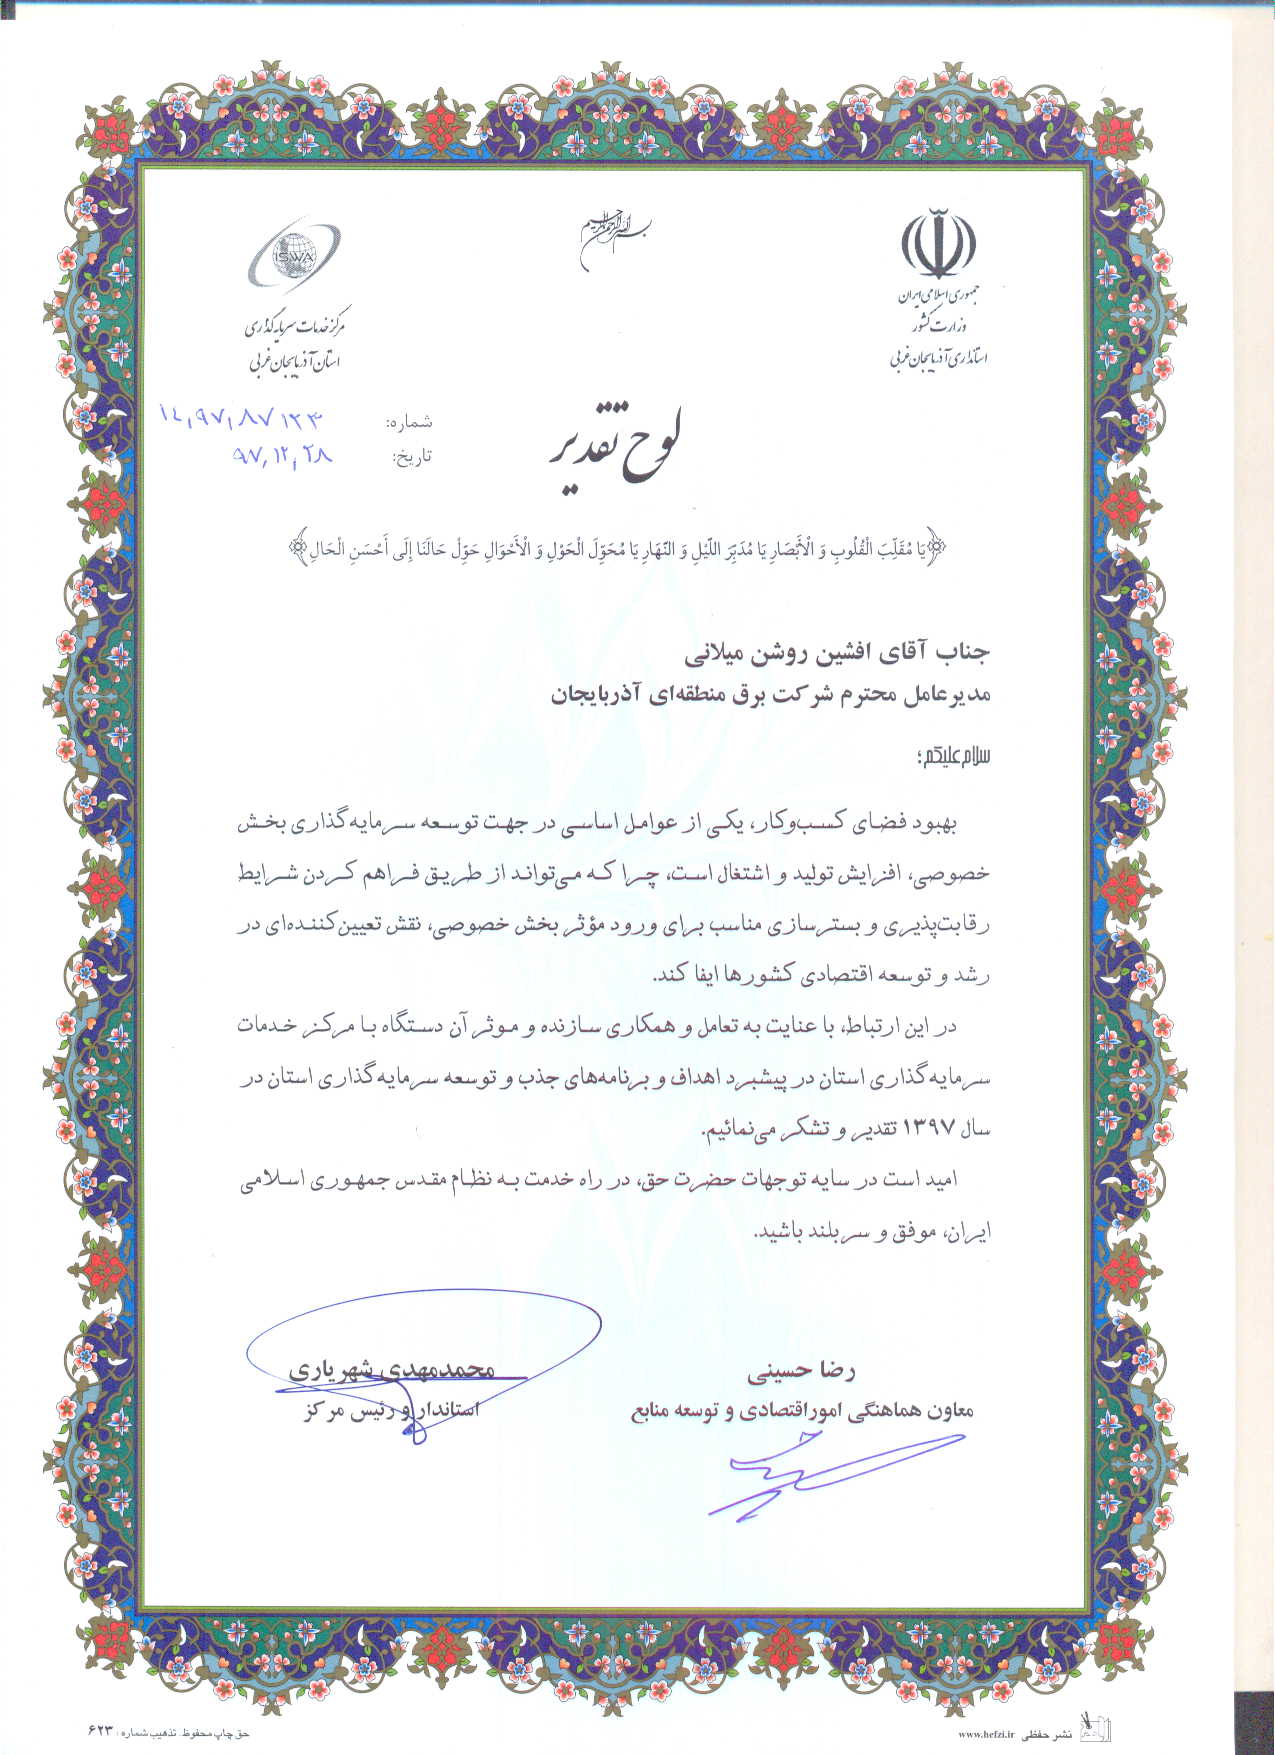 بسم الله الرحمن الرحیم
جمهوری اسلامی ایران
وزارت کشور
استانداری آذربایجان غربی
ISWA
مرکز خدمات سرمایه گذاری
استان آذربایجان غربی
لوح تقدیر
شماره:
تاریخ: ۹۷,۱۲,۲۸
یَا مُقَلِّبَ الْقُلُوبِ وَ الْأَبْصَارِ یَا مُدَبِّرَ اللَّیْلِ وَ النَّهَارِ یَا مُحَوِّلَ الْحَوْلِ وَ الْأَحْوَالِ حَوِّلْ حَالَنَا إِلَی أَحْسَنِ الْحَالِ
جناب آقای افشین روشن میلانی
مدیرعامل محترم شرکت برق منطقه‌ای آذربایجان
سلام علیکم؛
بهبود فضای کسب‌وکار، یکی از عوامل اساسی در جهت توسعه سرمایه‌گذاری بخش
خصوصی، افزایش تولید و اشتغال است، چرا که می‌تواند از طریق فراهم کردن شرایط
رقابت‌پذیری و بسترسازی مناسب برای ورود مؤثر بخش خصوصی، نقش تعیین‌کننده‌ای در
رشد و توسعه اقتصادی کشورها ایفا کند.
در این ارتباط، با عنایت به تعامل و همکاری سازنده و موثر آن دستگاه با مرکز خدمات
سرمایه‌گذاری استان در پیشبرد اهداف و برنامه‌های جذب و توسعه سرمایه‌گذاری استان در
سال ۱۳۹۷ تقدیر و تشکر می‌نمائیم.
امید است در سایه توجهات حضرت حق، در راه خدمت به نظام مقدس جمهوری اسلامی
ایران، موفق و سربلند باشید.
رضا حسینی
معاون هماهنگی اموراقتصادی و توسعه منابع
محمدمهدی شهریاری
استاندار و رئیس مرکز
نشر حفظی www.hefzi.ir
حق چاپ محفوظ. تذهیب شماره: ۶۲۳